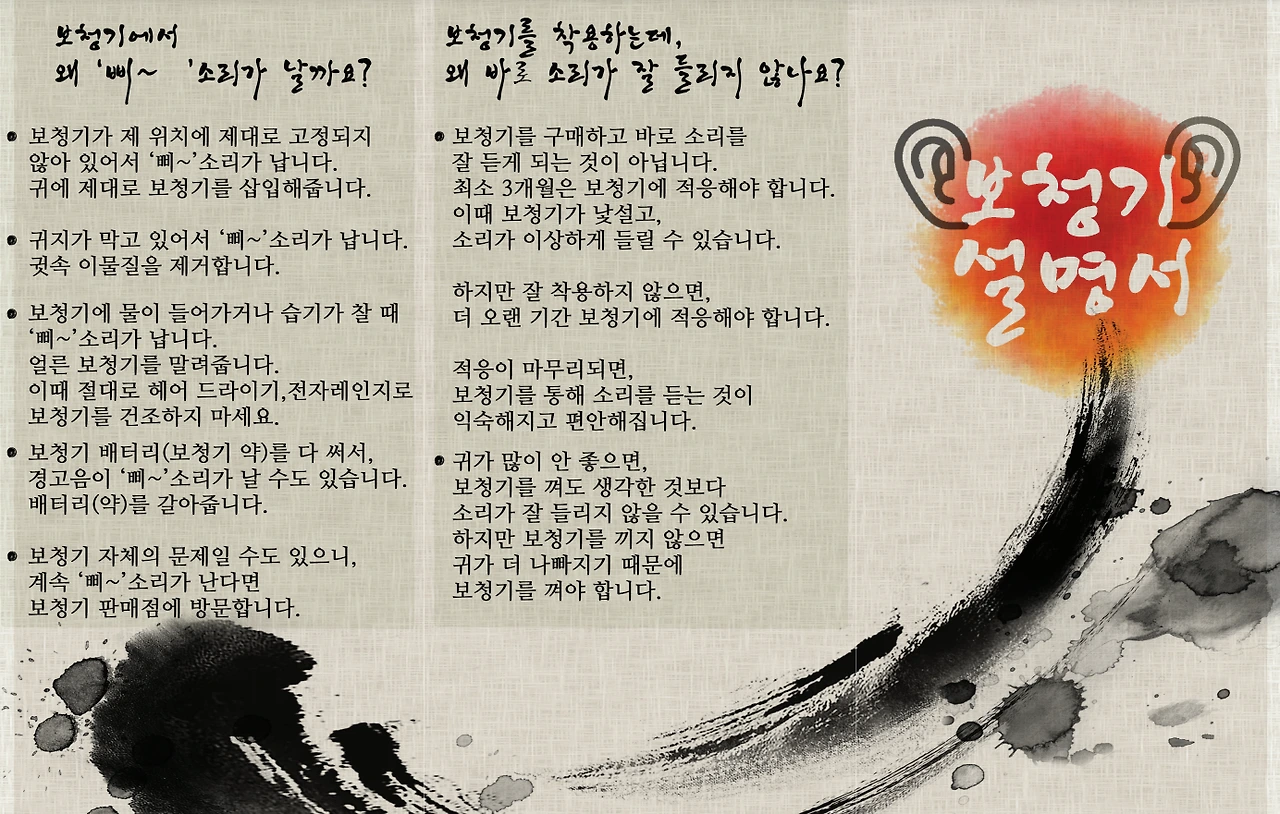 보청기에서
왜 '삐~ '소리가 날까요?
보청기가 제 위치에 제대로 고정되지
않아 있어서 ‘삐~’소리가 납니다.
귀에 제대로 보청기를 삽입해줍니다.
귀지가 막고 있어서 ‘삐~’소리가 납니다.
귓속 이물질을 제거합니다.
보청기에 물이 들어가거나 습기가 찰 때
‘삐~’소리가 납니다.
얼른 보청기를 말려줍니다.
이때 절대로 헤어 드라이기,전자레인지로
보청기를 건조하지 마세요.
보청기 배터리(보청기 약)를 다 써서,
경고음이 ‘삐~’소리가 날 수도 있습니다.
배터리(약)를 갈아줍니다.
보청기 자체의 문제일 수도 있으니,
계속 ‘삐~’소리가 난다면
보청기 판매점에 방문합니다.
보청기를 착용하는데,
왜 바로 소리가 잘 들리지 않나요?
보청기를 구매하고 바로 소리를
잘 듣게 되는 것이 아닙니다.
최소 3개월은 보청기에 적응해야 합니다.
이때 보청기가 낯설고,
소리가 이상하게 들릴 수 있습니다.
하지만 잘 착용하지 않으면,
더 오랜 기간 보청기에 적응해야 합니다.
적응이 마무리되면,
보청기를 통해 소리를 듣는 것이
익숙해지고 편안해집니다.
귀가 많이 안 좋으면,
보청기를 껴도 생각한 것보다
소리가 잘 들리지 않을 수 있습니다.
하지만 보청기를 끼지 않으면
귀가 더 나빠지기 때문에
보청기를 껴야 합니다.
보청기
설명서